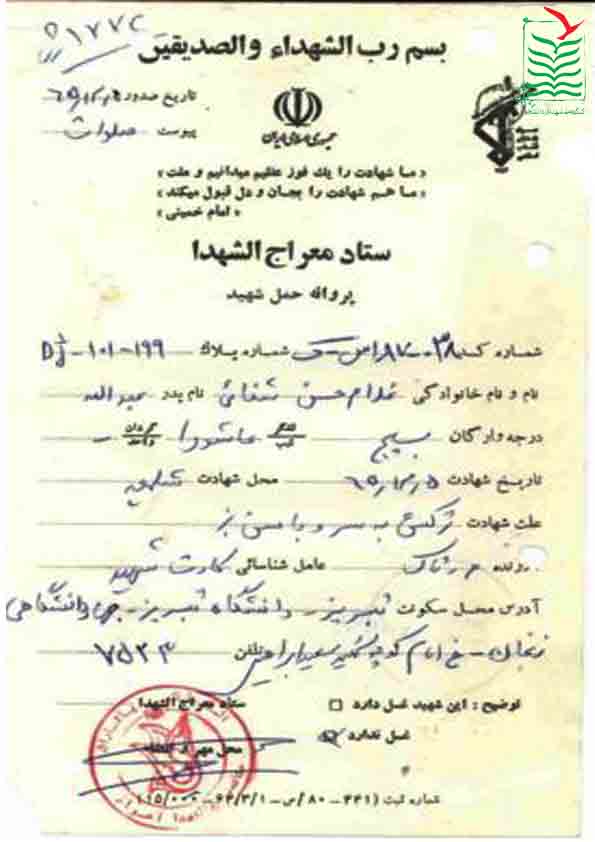 ۵۱۷۷۲
بسم رب الشهداء والصدیقین
تاریخ صدور ۶۵,۱۲,۵
جمهوری اسلامی ایران
پیوست صلوات
« ما شهادت را یك فوز عظیم میدانیم و ملت »
« ما هم شهادت را بجان و دل قبول میکند »
« امام خمینی »
ستاد معراج الشهدا
پروانه حمل شهید
شماره کد ۰۳۸-۸۷ شماره پلاك ۱۹۹-۱۰۱
نام و نام خانوادگی غلام حسن شفائی نام پدر عبداله
درجه وارگان بسیج لشگر تیپ عاشورا گردان واحد -
تاریخ شهادت ۶۵,۱۲,۵ محل شهادت شلمچه
علت شهادت ترکش به سر و
عامل شناسائی کارت شهید
آدرس محل سکونت تبریز - دانشگاه تبریز -
زنجان - خ امام کوچه شهید تلفن ۷۵۲۳
توضیح : این شهید غسل دارد ستاد معراج الشهدا
غسل ندارد محل مهر و امضاء
شماره ثبت (۴۴۱ – ۸۰ /س – ۶۴/۳/۱ – ۱۱۵/۰۰۰